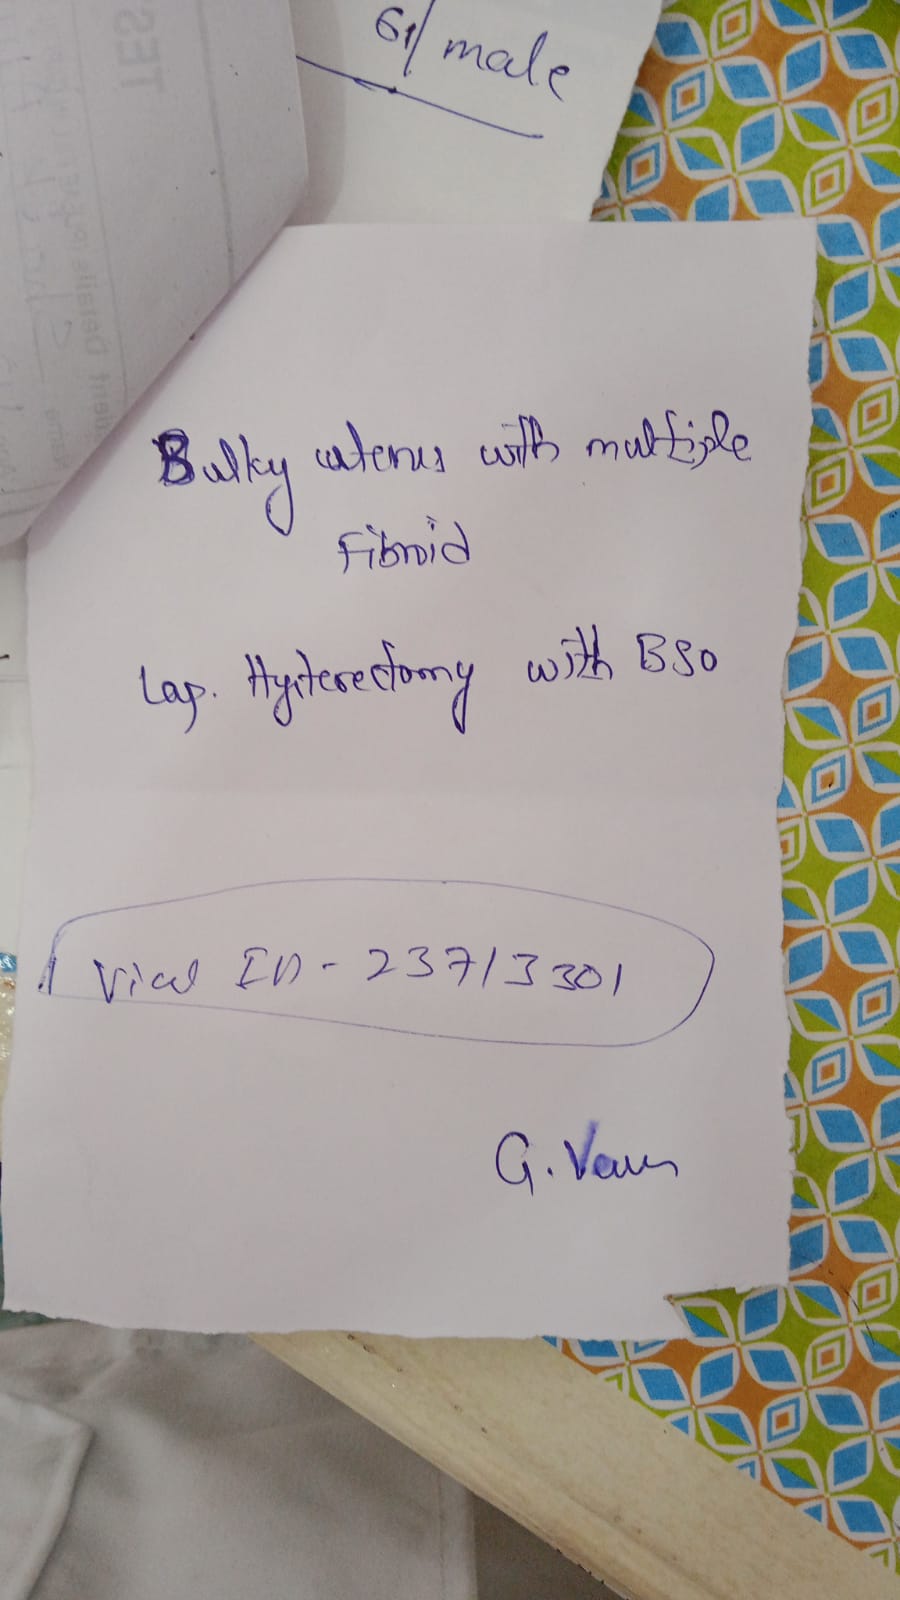 61/male
TES
Bulky uterus with multiple
Fibroid
Lap. Hysterectomy with BSO
Vial ID - 23713301
G.